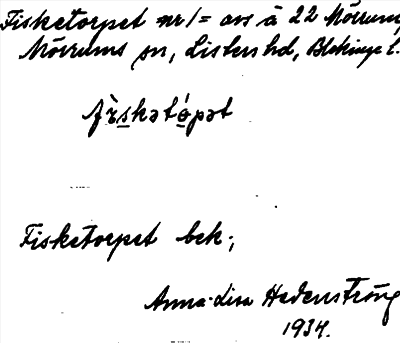 Fisketorpet nr 1 = avs å 22 Mörrum,
Mörrums sn, Listers hd, Blekinge l.
fìskətɒ́pət
Fisketorpet bek.;
Anna-Lisa Hedenström
1934.